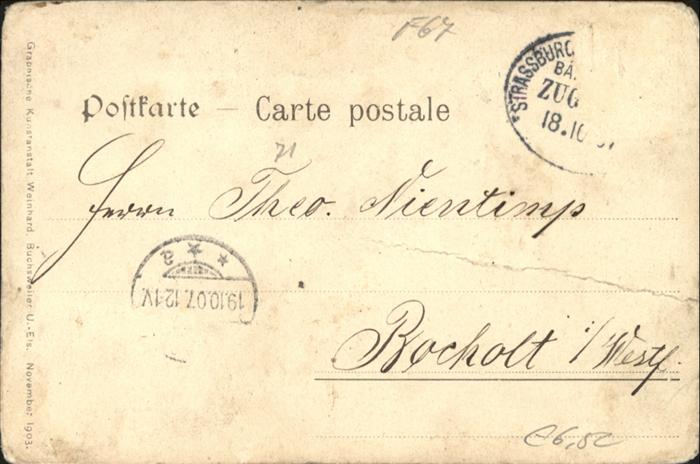 F67
STRASSBURG
BA
ZUG
18.10
Postkarte — Carte postale
71
Herrn Theo. Nientimp
19.10.07. 12-1V.
Bocholt i/Westf.
e6,50
Graphische Kunstanstalt Weinhard, Buchsweiler U.-Els. November 1903.